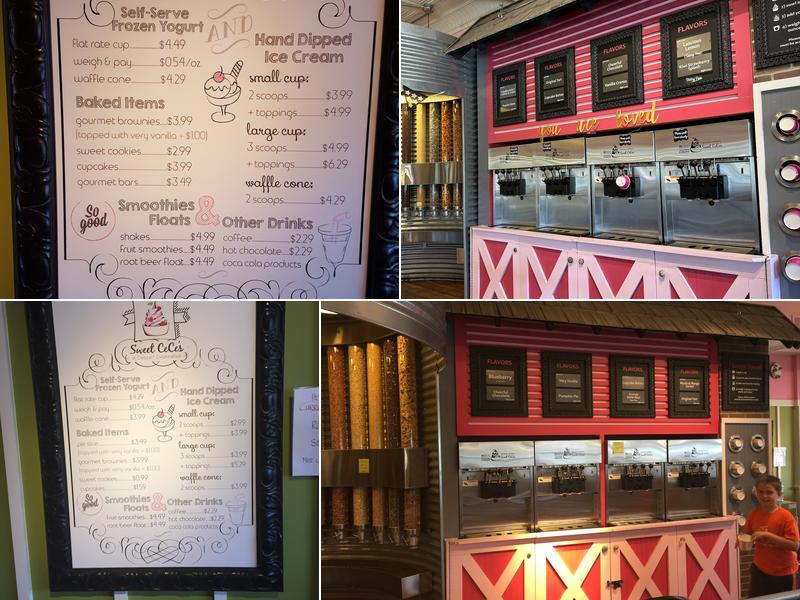 Self-Serve
Frozen Yogurt
AND
flat rate cup......$4.49
weigh & pay......$0.54/oz
waffle cone......$4.29
Baked Items
gourmet brownies...$3.99
(topped with very vanilla + $1.00)
sweet cookies......$2.99
cupcakes......$3.99
gourmet bars......$3.49
Hand Dipped
Ice Cream
small cup:
2 scoops......$3.99
+ toppings......$4.99
large cup:
3 scoops......$4.99
+ toppings......$6.29
waffle cone:
2 scoops......$4.29
So
good
Smoothies
& Floats
shakes......$4.99
fruit smoothies...$4.49
root beer float...$4.49
Other Drinks
coffee......$2.29
hot chocolate...$2.29
coca cola products
FLAVORS
FLAVORS
Original Tart
Cupcake Batter
FLAVORS
Cheerful
Chocolate
Vanilla Creme
FLAVORS
Luscious
Lemon
Kiwi Strawberry
you are loved
Sweet CeCe's
Sweet CeCe's
Self-Serve
Frozen Yogurt
AND
flat rate cup......$4.29
weigh & pay......$0.54/oz
waffle cone......$3.99
Baked Items
pie slice......$3.49
(topped with very vanilla + $1.00)
gourmet brownies...$3.99
(topped with very vanilla + $1.00)
sweet cookies......$0.99
cupcakes......$1.59
Hand Dipped
Ice Cream
small cup:
2 scoops......$2.99
+ toppings......$3.99
large cup:
3 scoops......$3.99
+ toppings......$5.29
waffle cone:
2 scoops......$3.99
So
good
Smoothies
& Floats
fruit smoothies...$4.49
root beer float...$4.49
Other Drinks
coffee......$2.29
hot chocolate...$2.29
coca cola products
FLAVORS
Blueberry
Cheerful
Chocolate
FLAVORS
Very Vanilla
Pumpkin Pie
FLAVORS
Cupcake Batter
FLAVORS
Original Tart